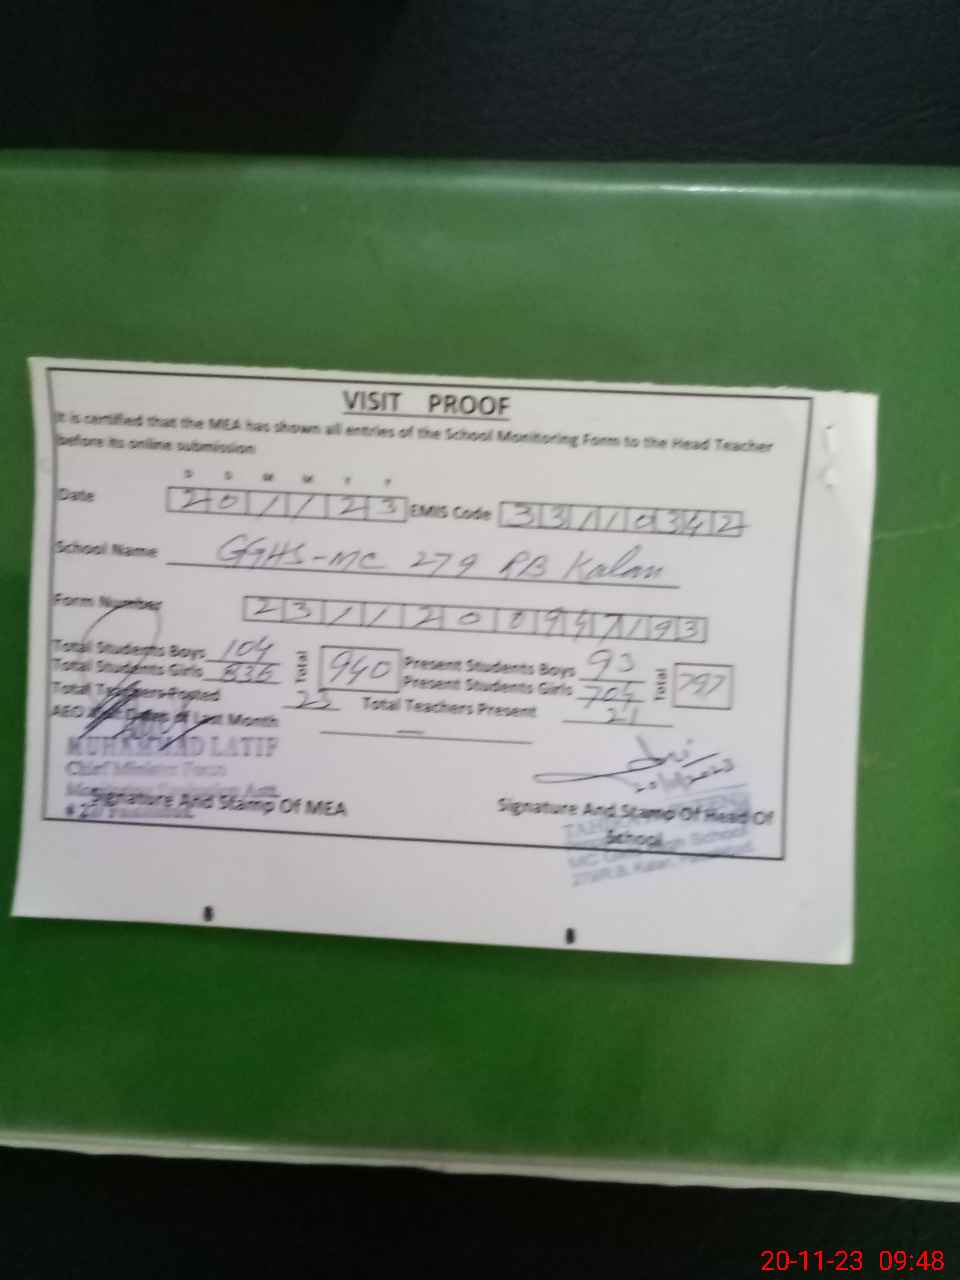 VISIT PROOF
It is certified that the MEA has shown all entries of the School Monitoring Form to the Head Teacher
before its online submission
D D M M Y Y
Date 20 11 23 EMIS Code 33110342
School Name GGHS-MC 279 RB Kalan
Form Number 23112009
Total Students Boys 104 Total 940 Present Students Boys 93 Total 797
Total Students Girls 836 Present Students Girls 704
Total Teachers Posted 23 Total Teachers Present 21
AEO Visit Dates of Last Month —
MUHAMMAD LATIF
Chief Minister
20/11/2023
Signature And Stamp Of MEA
Signature And Stamp Of Head Of
School
MC Girls High School
279/R.B. Kalan
20-11-23 09:48